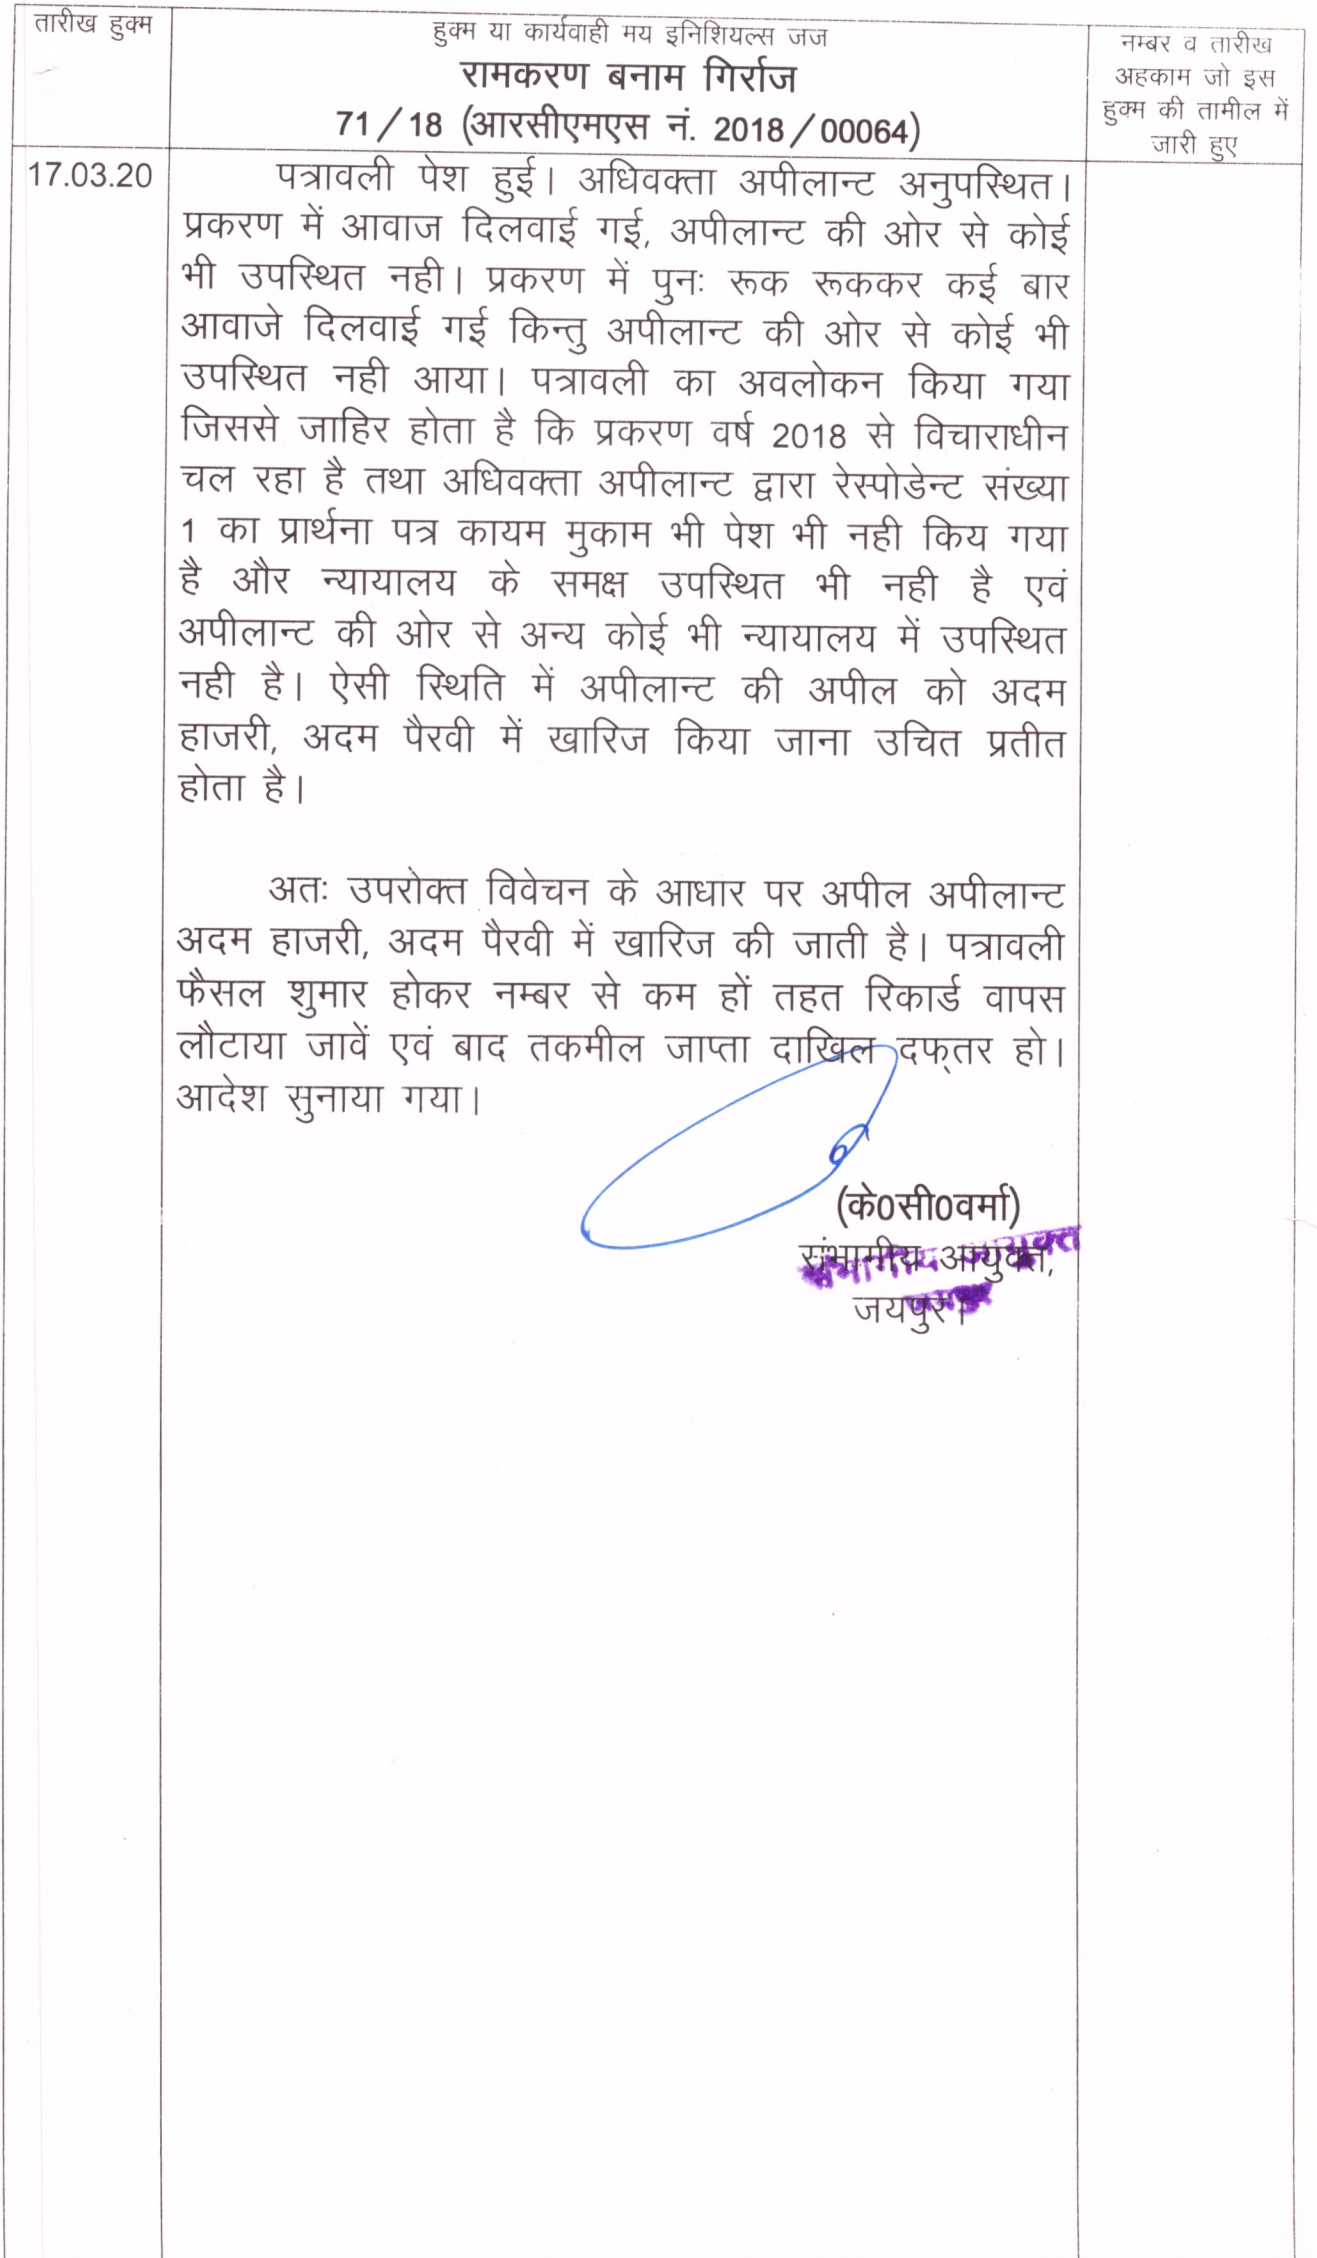 तारीख हुक्म
हुक्म या कार्यवाही मय इनिशियल्स जज
रामकरण बनाम गिर्राज
71/18 (आरसीएमएस नं. 2018/00064)
नम्बर व तारीख
अहकाम जो इस
हुक्म की तामील में
जारी हुए
17.03.20
पत्रावली पेश हुई। अधिवक्ता अपीलान्ट अनुपस्थित।
प्रकरण में आवाज दिलवाई गई, अपीलान्ट की ओर से कोई
भी उपस्थित नही। प्रकरण में पुनः रूक रूककर कई बार
आवाजे दिलवाई गई किन्तु अपीलान्ट की ओर से कोई भी
उपस्थित नही आया। पत्रावली का अवलोकन किया गया
जिससे जाहिर होता है कि प्रकरण वर्ष 2018 से विचाराधीन
चल रहा है तथा अधिवक्ता अपीलान्ट द्वारा रेस्पोडेन्ट संख्या
1 का प्रार्थना पत्र कायम मुकाम भी पेश भी नही किय गया
है और न्यायालय के समक्ष उपस्थित भी नही है एवं
अपीलान्ट की ओर से अन्य कोई भी न्यायालय में उपस्थित
नही है। ऐसी स्थिति में अपीलान्ट की अपील को अदम
हाजरी, अदम पैरवी में खारिज किया जाना उचित प्रतीत
होता है।
अतः उपरोक्त विवेचन के आधार पर अपील अपीलान्ट
अदम हाजरी, अदम पैरवी में खारिज की जाती है। पत्रावली
फैसल शुमार होकर नम्बर से कम हों तहत रिकार्ड वापस
लौटाया जावें एवं बाद तकमील जाप्ता दाखिल दफ्तर हो।
आदेश सुनाया गया।
(के0सी0वर्मा)
संभागीय आयुक्त,
जयपुर।